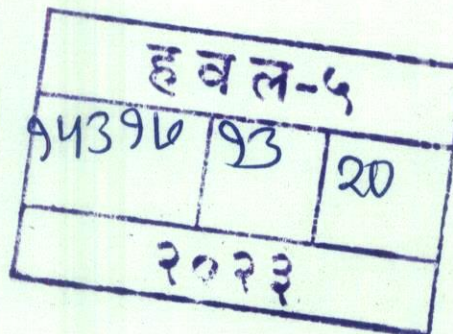 हवल-५
१५३१७ १३ २०
२०२३